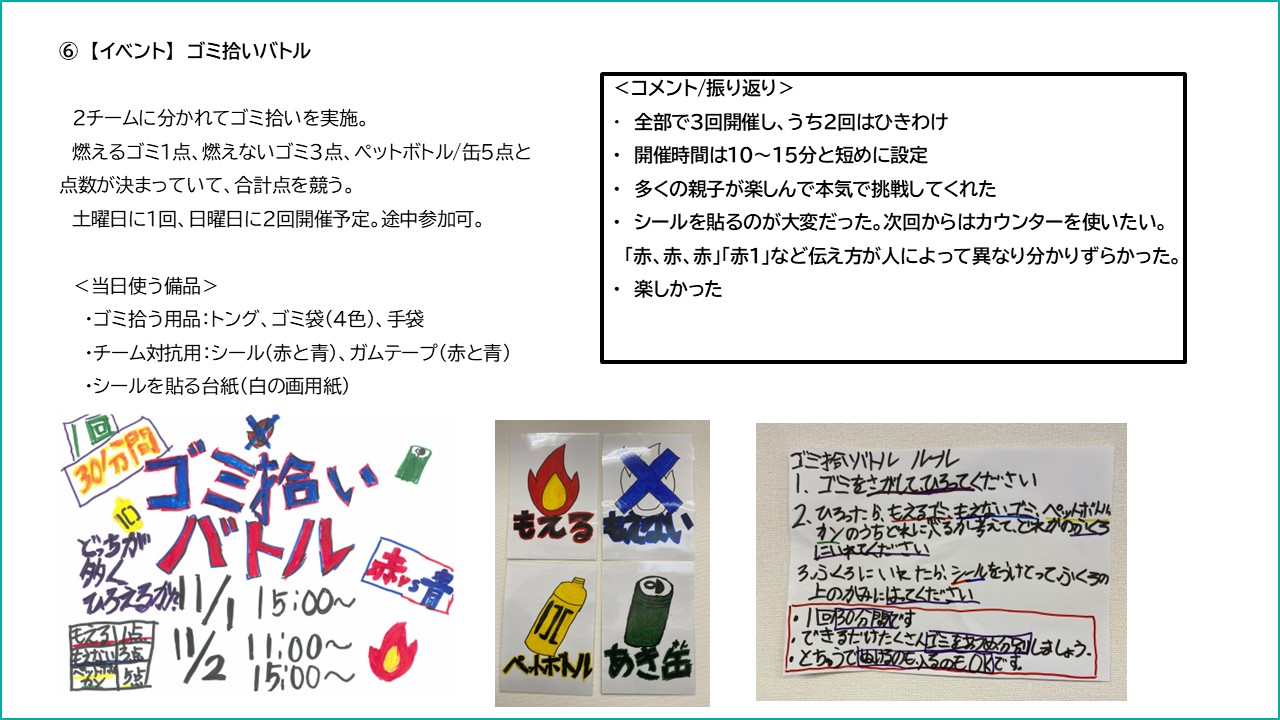 ⑥ 【イベント】 ゴミ拾いバトル
２チームに分かれてゴミ拾いを実施。
燃えるゴミ１点、燃えないゴミ３点、ペットボトル/缶５点と
点数が決まっていて、合計点を競う。
土曜日に１回、日曜日に２回開催予定。途中参加可。
＜当日使う備品＞
・ゴミ拾う用品：トング、ゴミ袋（４色）、手袋
・チーム対抗用：シール（赤と青）、ガムテープ（赤と青）
・シールを貼る台紙（白の画用紙）
＜コメント/振り返り＞
・ 全部で３回開催し、うち２回はひきわけ
・ 開催時間は１０～１５分と短めに設定
・ 多くの親子が楽しんで本気で挑戦してくれた
・ シールを貼るのが大変だった。次回からはカウンターを使いたい。
「赤、赤、赤」「赤１」など伝え方が人によって異なり分かりずらかった。
・ 楽しかった
1回
30分間
ゴミ拾い
バトル
どっちが
多く
ひろえるか?!
赤vs青
11/1 15:00～
11/2 11:00～
15:00～
もえる 1点
もえない 3点
ペットボトル
カン 5点
もえる
もえない
ペットボトル
あき缶
ゴミ拾いバトル ルール
1. ゴミをさがして、ひろってください
2. ひろったら、もえるゴミ、もえないゴミ、ペットボトル、
カンのうちどれに入るか考えて、どれかのふくろ
にいれてください
3. ふくろにいれたら、シールをうけとって、ふくろの
上のかみにはってください
・1回30分間です
・できるだけたくさんゴミをあつめ分別しましょう。
・とちゅうでぬけるのも入るのもOKです。